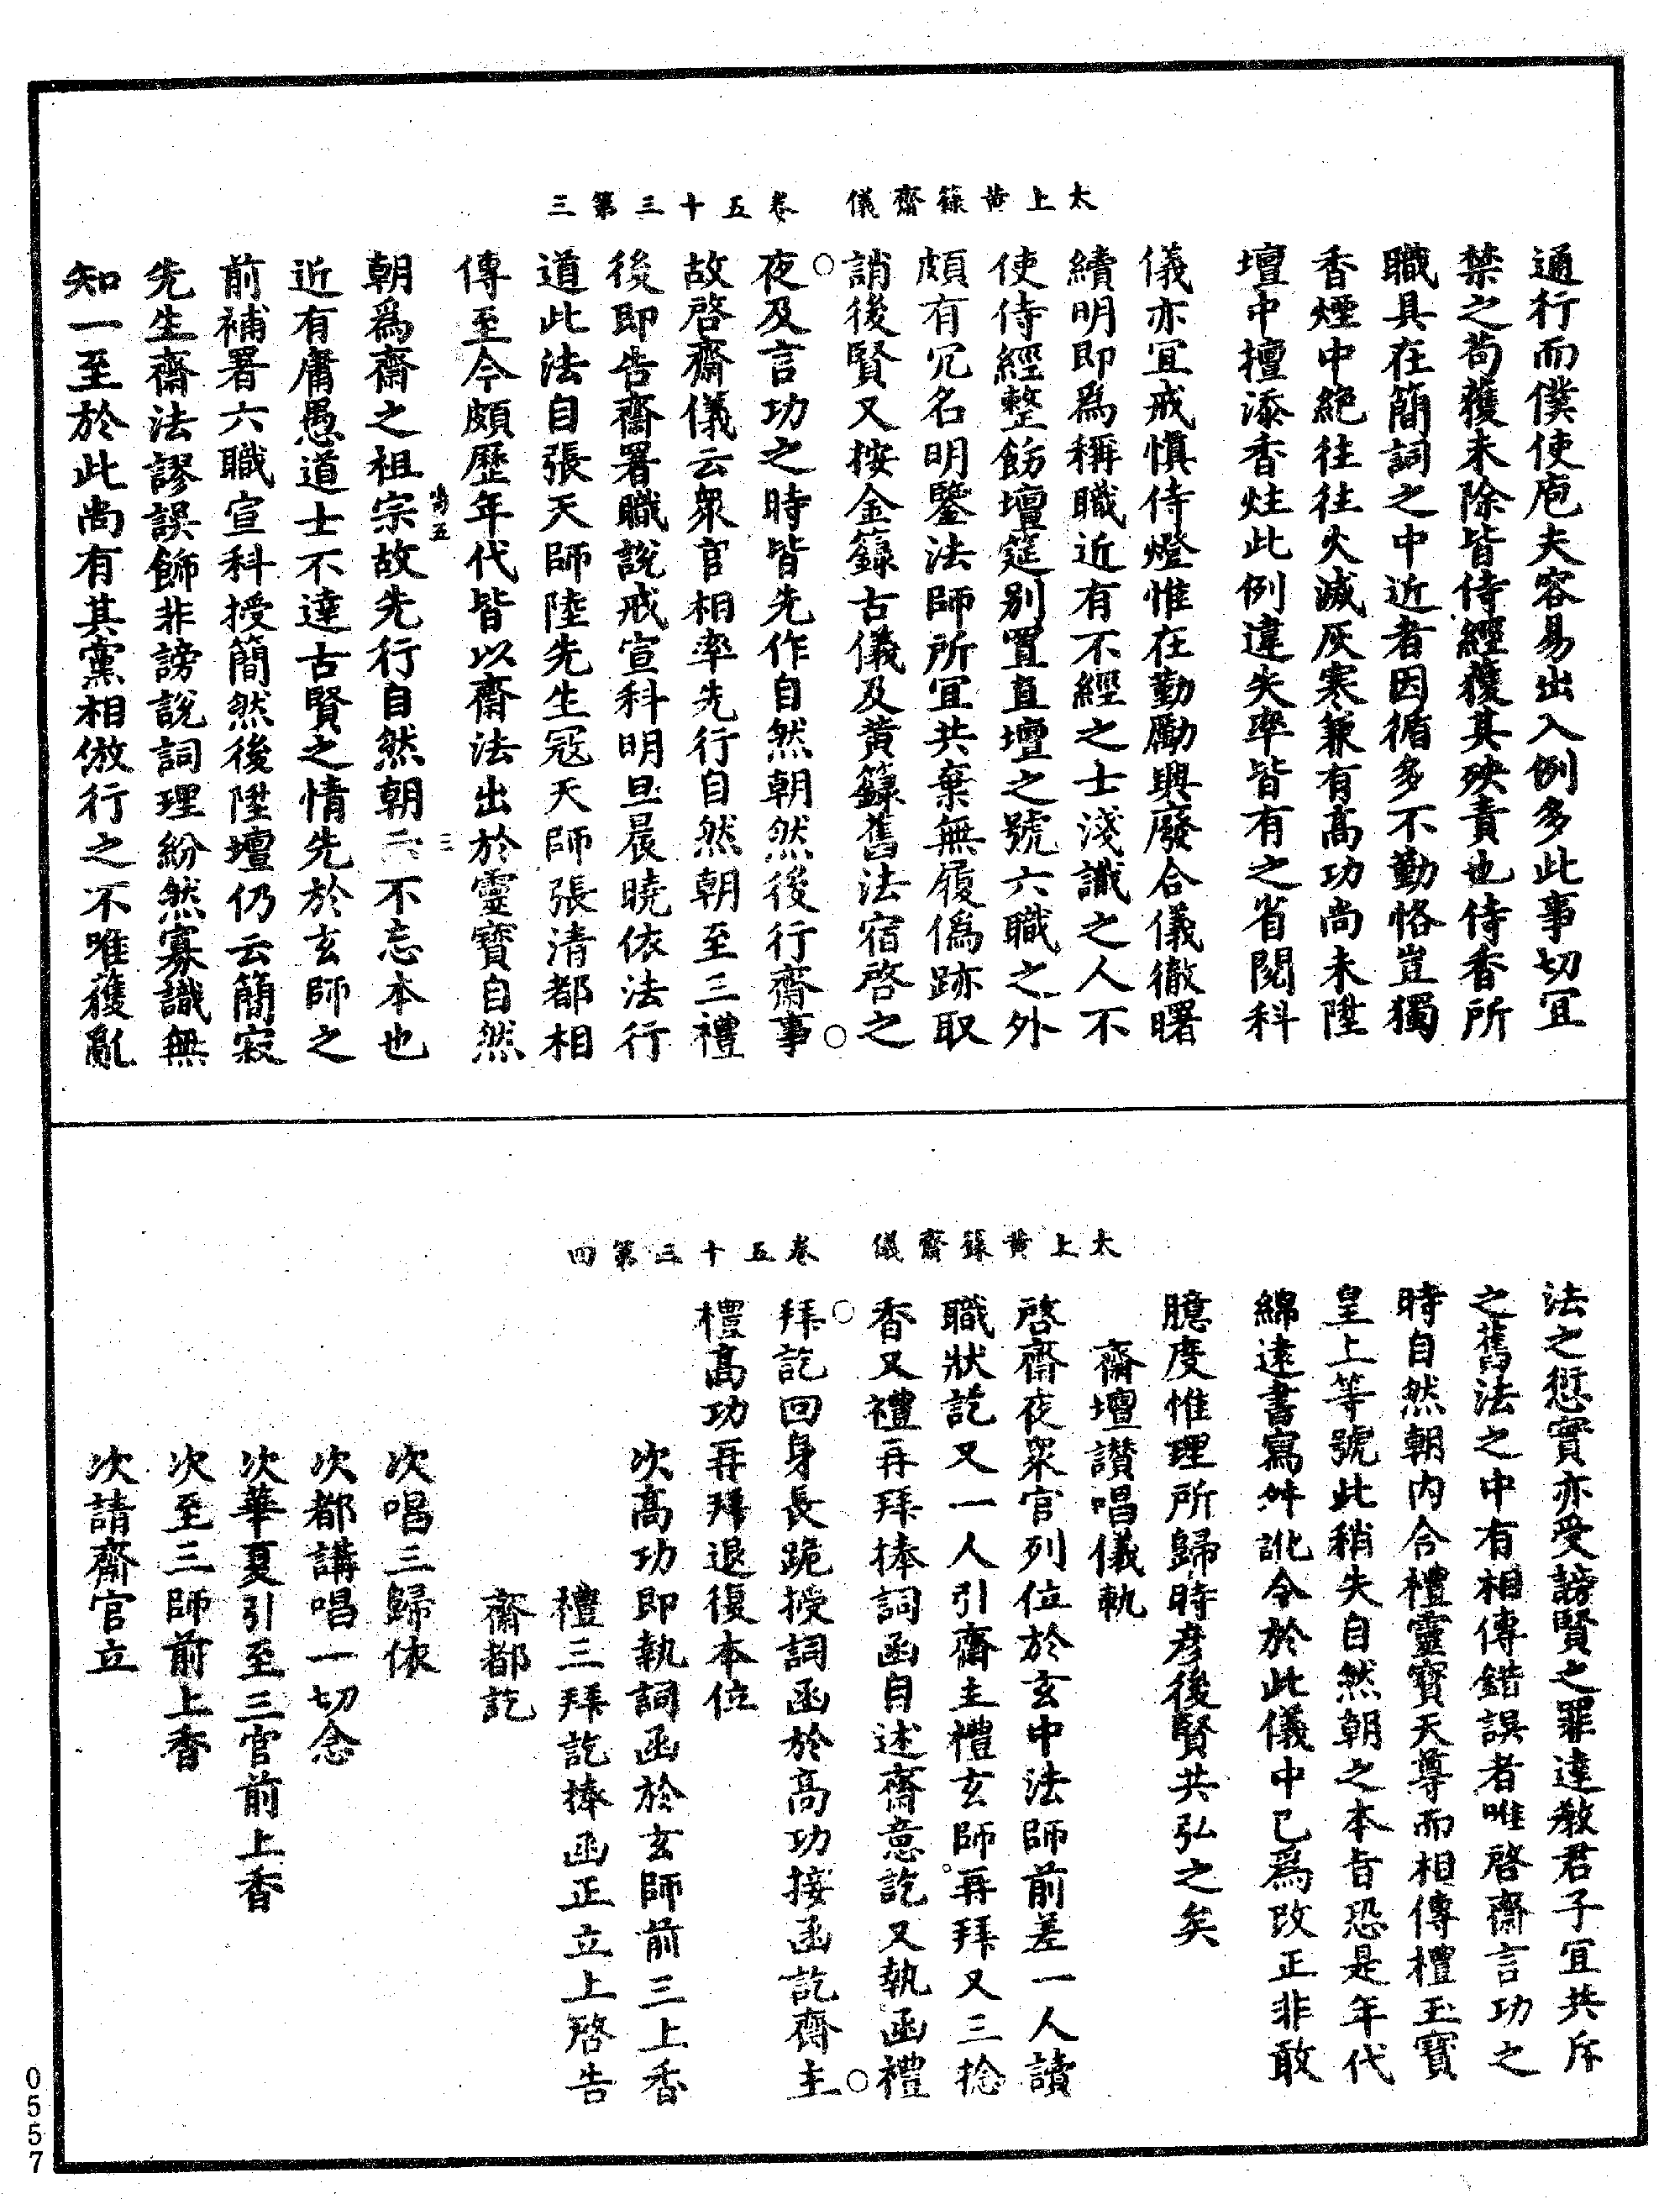 太上黃籙齋儀　卷五十三第三
通行而僕使庖夫容易出入例多此事切冝
禁之苟獲未除皆侍經獲其殃責也侍香所
職具在簡詞之中近者因循多不勤恪豈獨
香煙中絕往往火滅灰寒兼有高功尚未陞
壇中擅添香炷此例違失率皆有之省閱科
儀亦冝戒慎侍燈惟在勤勵興廢合儀徹曙
續明即爲稱職近有不經之士淺識之人不
使侍經整飭壇筵別置直壇之號六職之外
頗有冗名明鑒法師所冝共棄無履僞跡取
誚後賢又按金籙古儀及黃籙舊法宿啓之
夜及言功之時皆先作自然朝然後行齋事
故啓齋儀云衆官相率先行自然朝至三禮
後即告齋署職說戒宣科明旦晨曉依法行
道此法自張天師陸先生冦天師張清都相
傳至今頗歷年代皆以齋法出於靈寶自然
朝爲齋之祖宗故先行自然朝示不忘本也
近有庸愚道士不達古賢之情先於玄師之
前補署六職宣科授簡然後陞壇仍云簡寂
先生齋法謬誤飾非謗說詞理紛然寡識無
知一至於此尚有其黨相倣行之不唯獲亂
太上黃籙齋儀　卷五十三第四
法之愆實亦受謗賢之罪達教君子冝共斥
之舊法之中有相傳錯誤者唯啓齋言功之
時自然朝內合禮靈寶天尊而相傳禮玉寶
皇上等號此稍失自然朝之本旨恐是年代
綿遠書寫舛訛今於此儀中已爲改正非敢
臆度惟理所歸時彥後賢共弘之矣
齋壇讃唱儀軌
啓齋夜衆官列位於玄中法師前差一人讀
職狀訖又一人引齋主禮玄師再拜又三捻
香又禮再拜捧詞函自述齋意訖又執函禮
拜訖回身長跪授詞函於高功接函訖齋主
禮高功再拜退復本位
次高功即執詞函於玄師前三上香
禮三拜訖捧函正立上啓告
齋都訖
次唱三歸依
次都講唱一切念
次華夏引至三官前上香
次至三師前上香
次請齋官立
0557